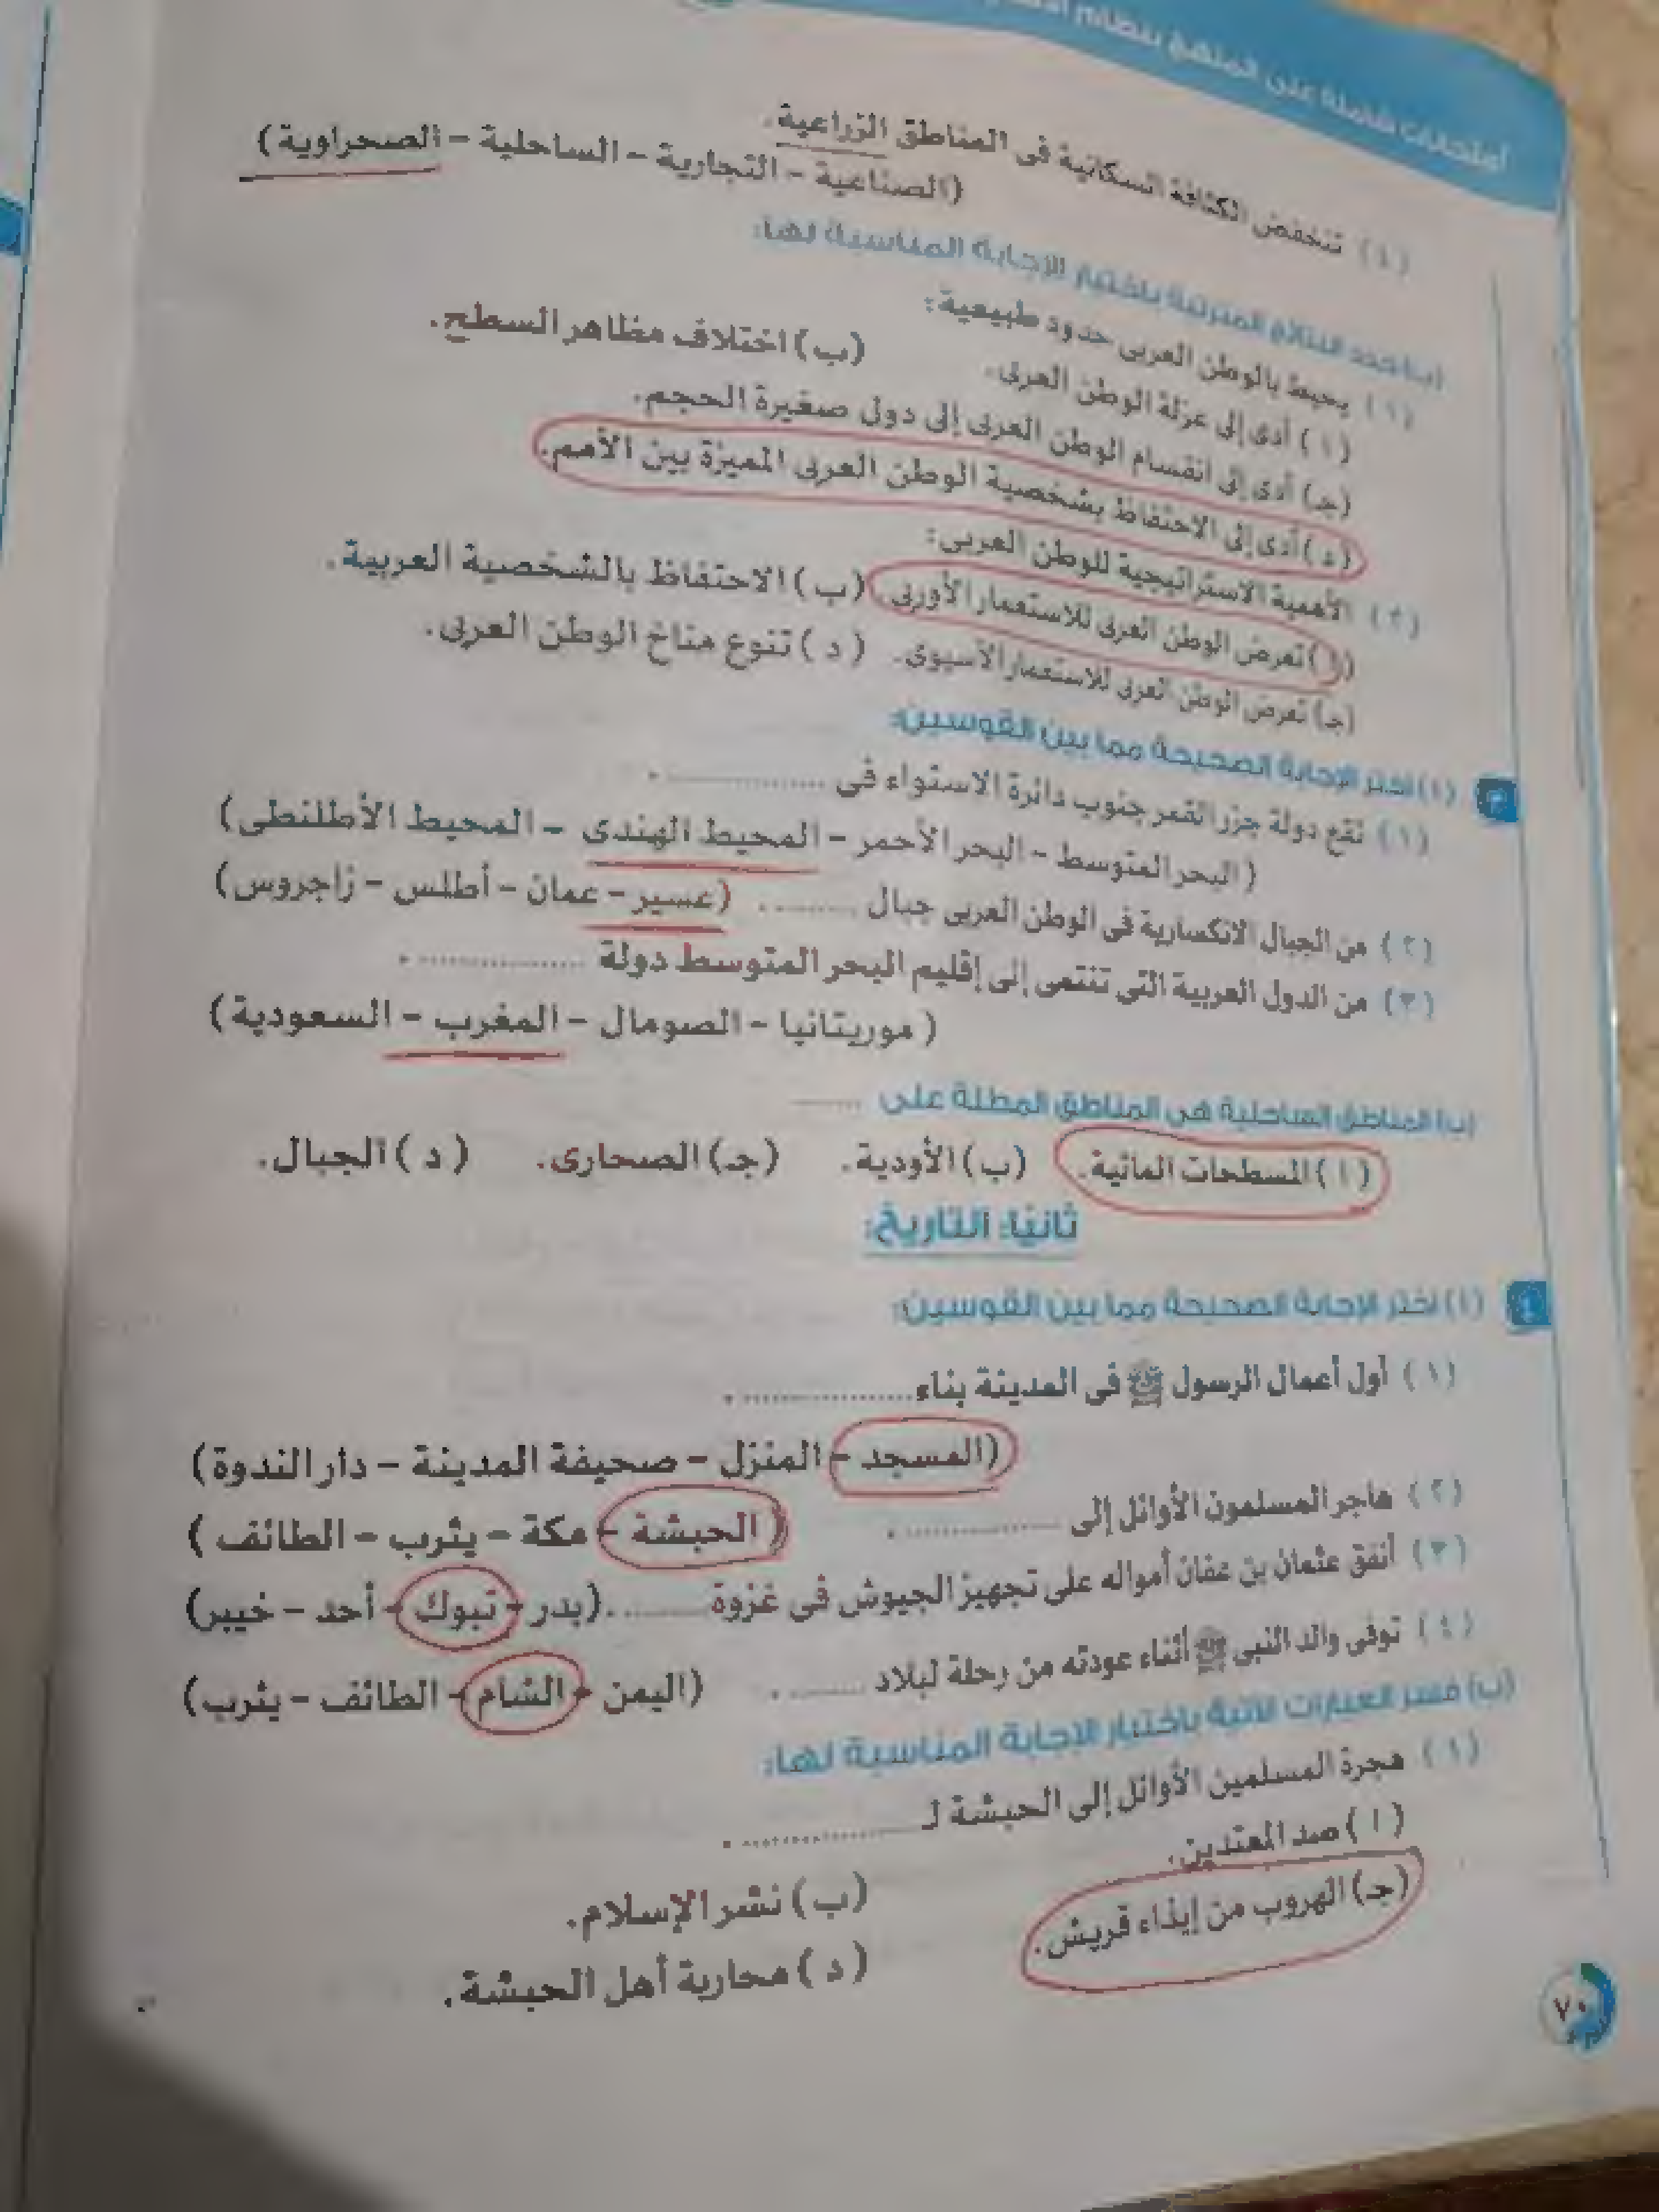 امتحانات شاملة على المنهج بنظام
(٤) تنخفض الكثافة السكانية فى المناطق الزراعية.
(الصناعية - التجارية - الساحلية - الصحراوية)
(ب) حدد النتائج المترتبة باختيار الإجابة المناسبة لها:
(١) يحيط بالوطن العربى حدود طبيعية:
(ا) أدى إلى عزلة الوطن العربى. (ب) اختلاف مظاهر السطح.
(جـ) أدى إلى انقسام الوطن العربى إلى دول صغيرة الحجم.
(د) أدى إلى الاحتفاظ بشخصية الوطن العربى المميزة بين الأمم.
(٢) الأهمية الاستراتيجية للوطن العربى:
(ا) تعرض الوطن العربى للاستعمار الأوربى. (ب) الاحتفاظ بالشخصية العربية.
(جـ) تعرض الوطن العربى للاستعمار الآسيوى. (د) تنوع مناخ الوطن العربى.
٣ (ا) اختر الإجابة الصحيحة مما بين القوسين:
(١) تقع دولة جزر القمر جنوب دائرة الاستواء فى ...............
(البحر المتوسط - البحر الأحمر - المحيط الهندى - المحيط الأطلنطى)
(٢) من الجبال الانكسارية فى الوطن العربى جبال .......... (عسير - عمان - أطلس - زاجروس)
(٣) من الدول العربية التى تنتمى إلى إقليم البحر المتوسط دولة ...............
(موريتانيا - الصومال - المغرب - السعودية)
(ب) المناطق الساحلية هى المناطق المطلة على ........
(ا) المسطحات المائية. (ب) الأودية. (جـ) الصحارى. (د) الجبال.
ثانيًا: التاريخ:
٤ (ا) اختر الإجابة الصحيحة مما بين القوسين:
(١) أول أعمال الرسول ﷺ فى المدينة بناء ...............
(المسجد - المنزل - صحيفة المدينة - دار الندوة)
(٢) هاجر المسلمون الأوائل إلى ............... (الحبشة - مكة - يثرب - الطائف)
(٣) أنفق عثمان بن عفان أمواله على تجهيز الجيوش فى غزوة .......... (بدر - تبوك - أحد - خيبر)
(٤) توفى والد النبى ﷺ أثناء عودته من رحلة لبلاد .......... (اليمن - الشام - الطائف - يثرب)
(ب) فسر العبارات الآتية باختيار الإجابة المناسبة لها:
(١) هجرة المسلمين الأوائل إلى الحبشة لـ ...............
(ا) صد المعتدين. (ب) نشر الإسلام.
(جـ) الهروب من إيذاء قريش. (د) محاربة أهل الحبشة.
٧٠